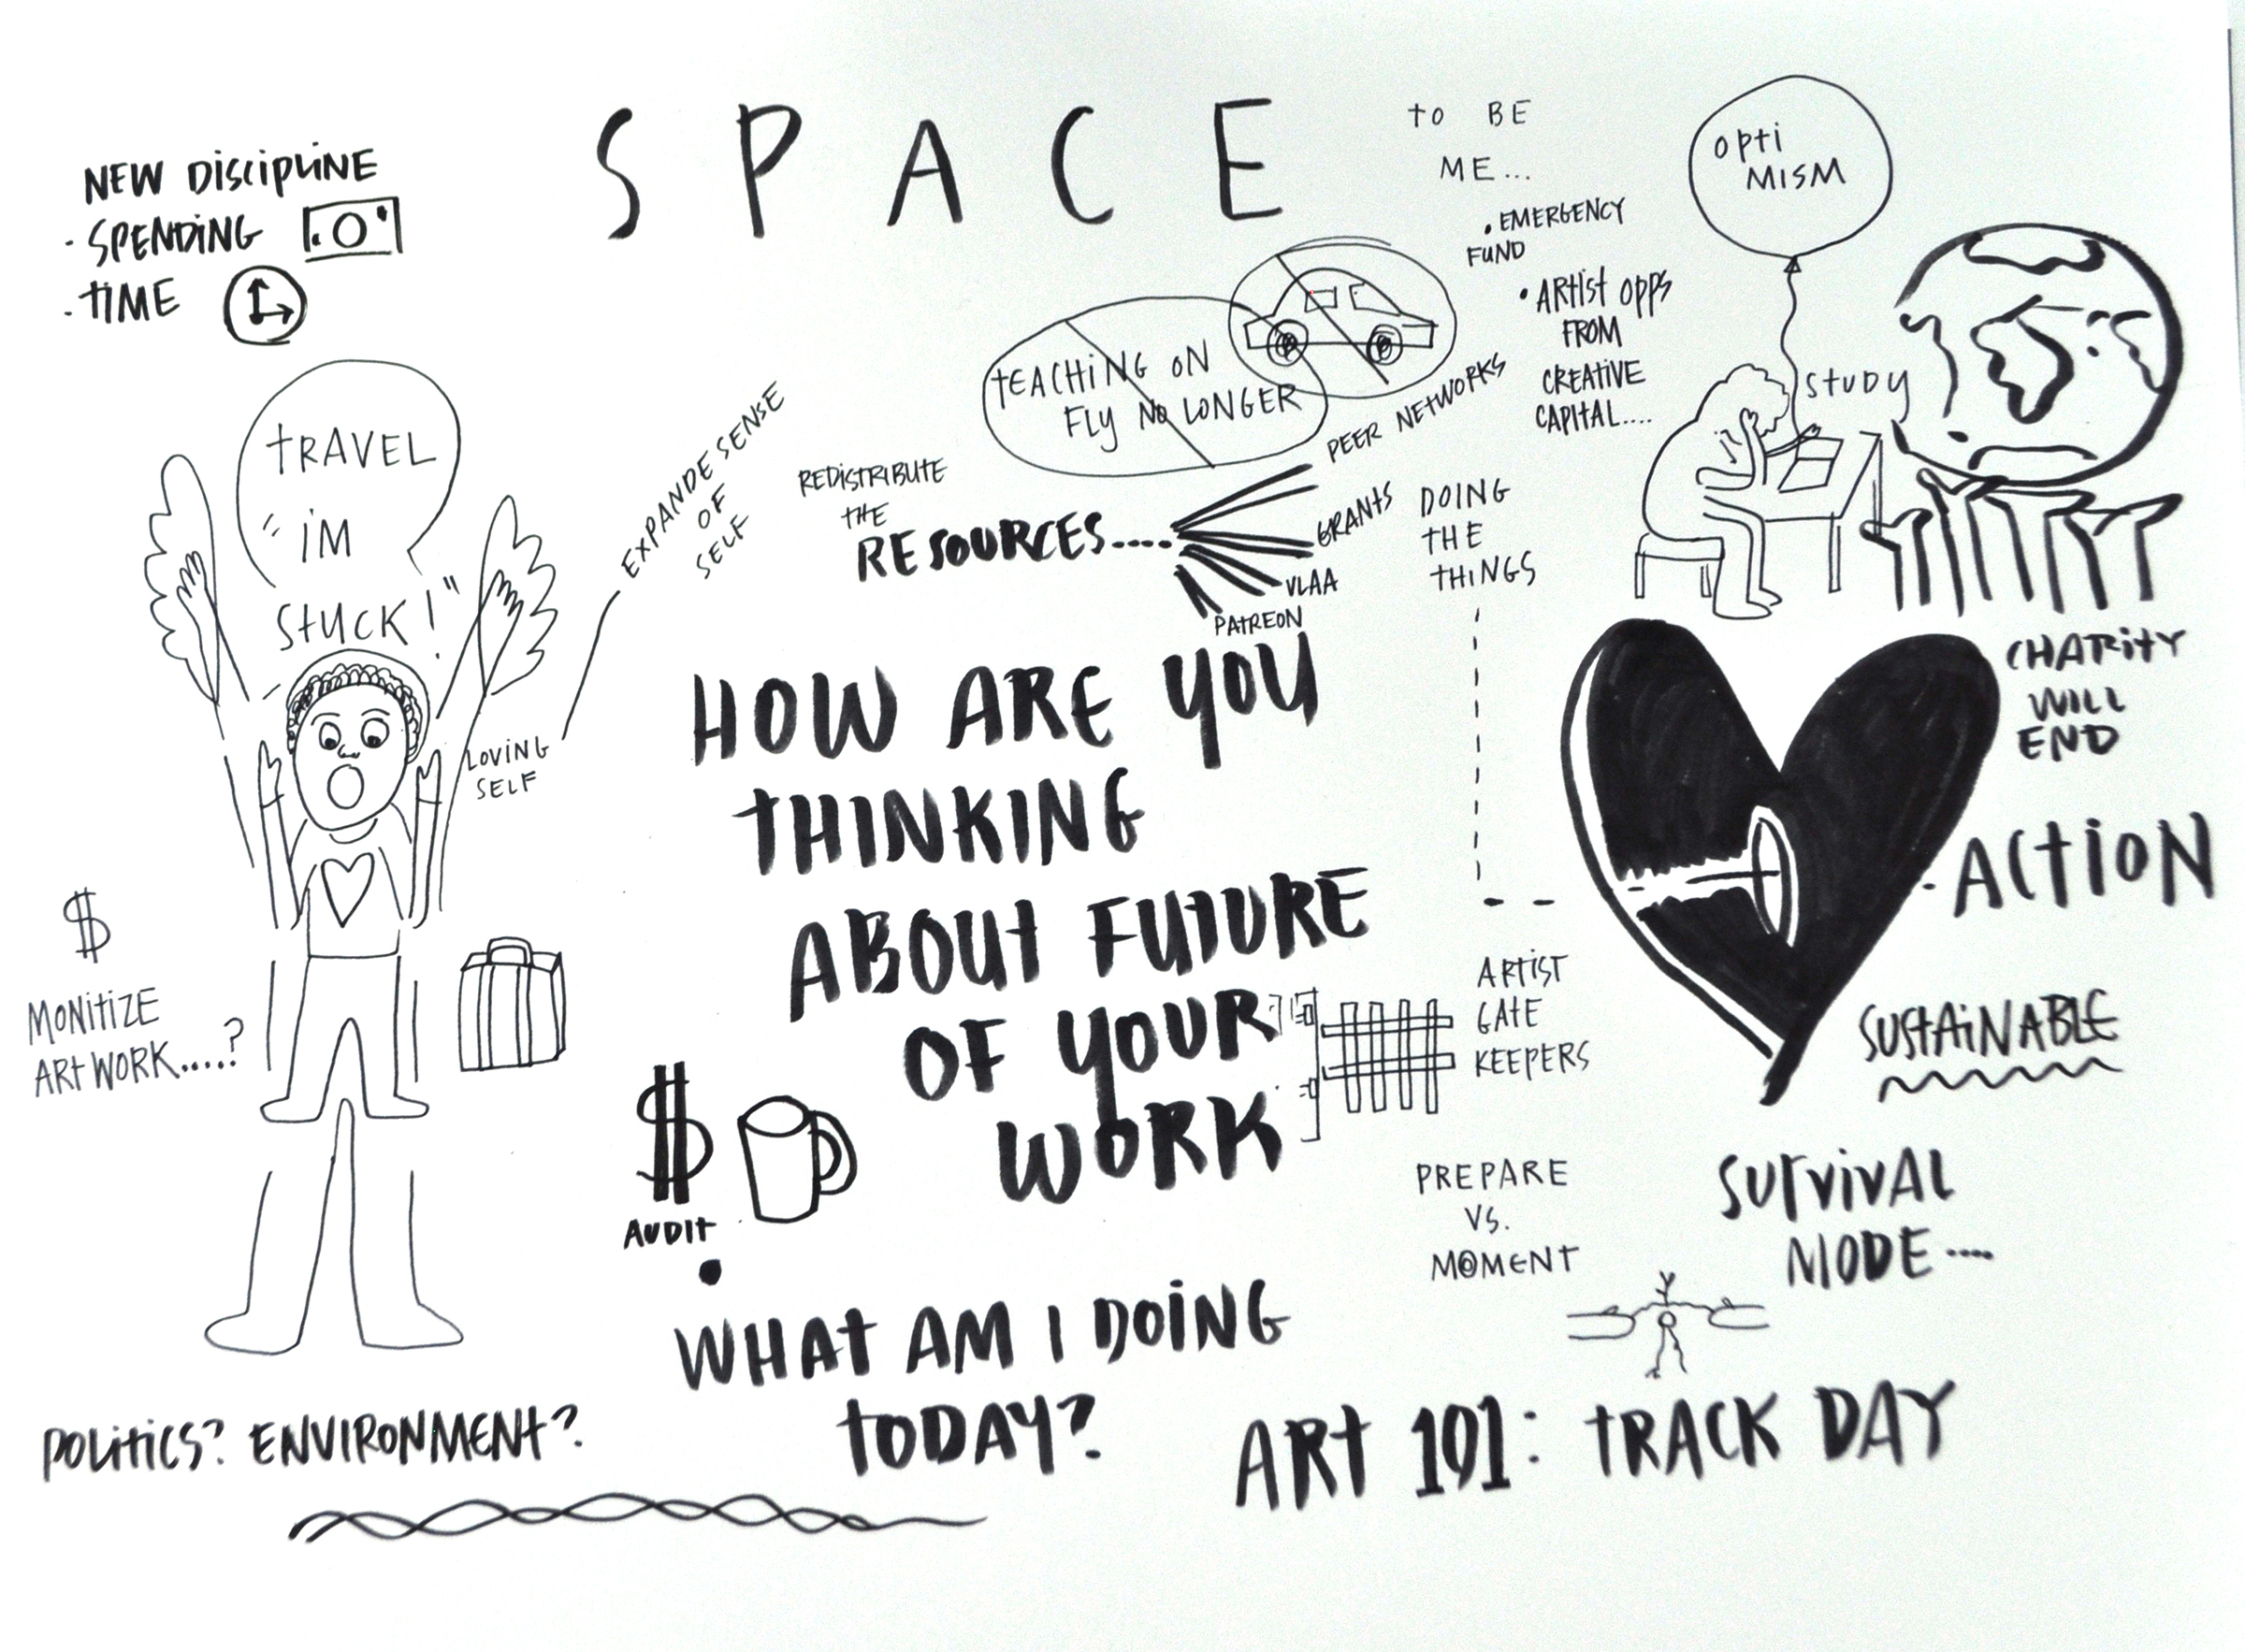 SPACE
TO BE
ME...
NEW DISCIPLINE
· SPENDING
· TIME
TRAVEL
"I'M
STUCK!"
LOVING
SELF
EXPANDE SENSE
OF
SELF
$
MONITIZE
ARTWORK.....?
REDISTRIBUTE
THE
RESOURCES.....
PEER NETWORKS
GRANTS
VLAA
PATREON
TEACHING ON
FLY NO LONGER
· EMERGENCY
FUND
· ARTIST OPPS
FROM
CREATIVE
CAPITAL....
OPTI
MISM
STUDY
DOING
THE
THINGS
HOW ARE YOU
THINKING
ABOUT FUTURE
OF YOUR
WORK
$
AUDIT
ARTIST
GATE
KEEPERS
CHARITY
WILL
END
· ACTION
SUSTAINABLE
SURVIVAL
MODE....
PREPARE
VS.
MOMENT
WHAT AM I DOING
TODAY?
POLITICS? ENVIRONMENT?
ART 101: TRACK DAY